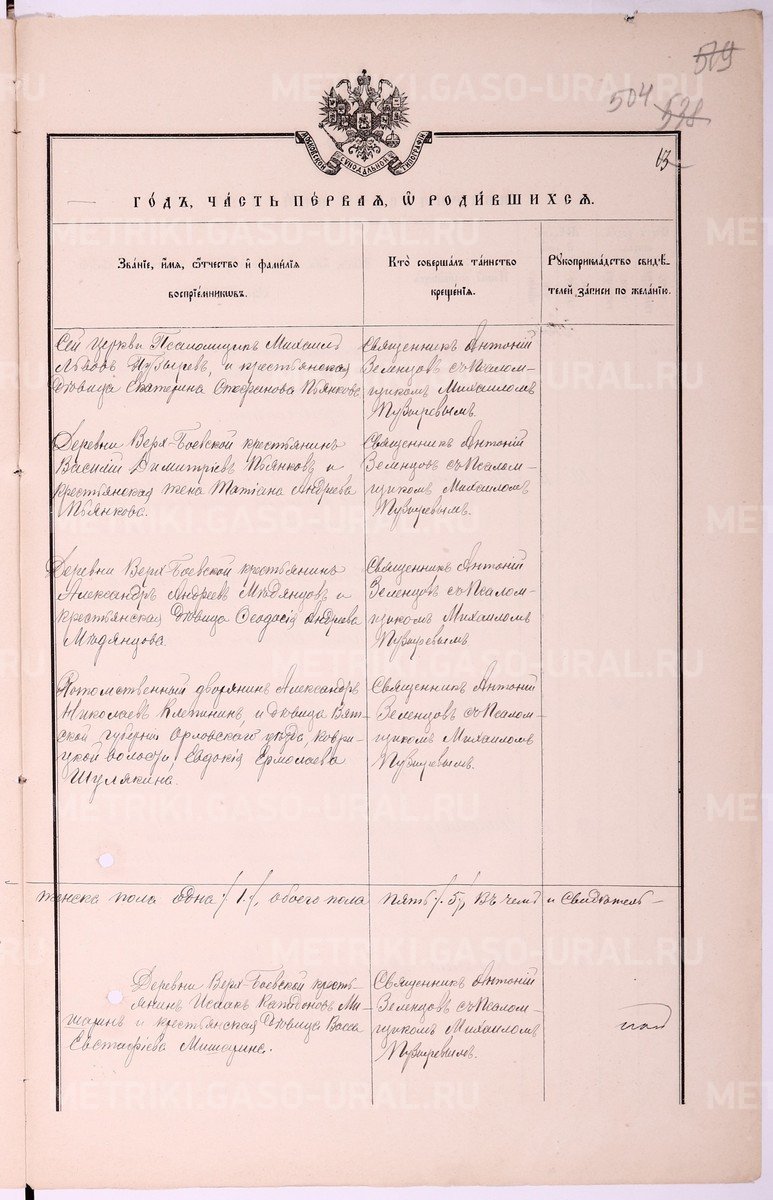 519
504 528
13
МОСКОВСКОЙ СѴНОДАЛЬНОЙ ТИПОГРАФІИ
ГО́ДЪ, ЧА́СТЬ ПЕ́РВАЯ, Ѡ҆ РОДИ́ВШИХСЯ.
Зва́нїе, и҆́мя, ѻ҆́тчество и҆ фами́лїя
воспрїе́мникѡвъ.
Кто̀ соверша́лъ та́инство
креще́нїя.
Рꙋкоприкла́дство свидѣ́-
телей за́писи по жела́нїю.
Сей церкви Псаломщикъ Михаилъ
Львовъ Пузыревъ, и крестьянская
дѣвица Екатерина Стефанова Пьянкова
Священникъ Антоній
Зеленцовъ съ Псалом-
щикомъ Михаиломъ
Пузыревымъ.
Деревни Верх-Боевской крестьянинъ
Василій Димитріевъ Пьянковъ и
крестьянская жена Татіана Андреева
Пьянкова.
Священникъ Антоній
Зеленцовъ съ Псалом-
щикомъ Михаиломъ
Пузыревымъ.
Деревни Верх-Боевской крестьянинъ
Александръ Андреевъ Мѣдянцовъ и
крестьянская дѣвица Ѳеодосія Андреева
Мѣдянцова.
Священникъ Антоній
Зеленцовъ съ Псалом-
щикомъ Михаиломъ
Пузыревымъ
Потомственный дворянинъ Александръ
Николаевъ Клепининъ, и дѣвица Вят-
ской губерніи Орловскаго уѣзда,
волости, Евдокія Ермолаева
Шулякина.
Священникъ Антоній
Зеленцовъ съ Псалом-
щикомъ Михаиломъ
Пузыревымъ.
женска пола одна /1/, обоего пола пять /5/, въ чемъ и свидѣтель-
Деревни Верх-Боевской кресть-
янинъ Исаакъ Ми-
шаринъ и крестьянская дѣвица Васса
Евстафіева Мишарина.
Священникъ Антоній
Зеленцовъ съ Псалом-
щикомъ Михаиломъ
Пузыревымъ.
METRIKI.GASO-URAL.RU